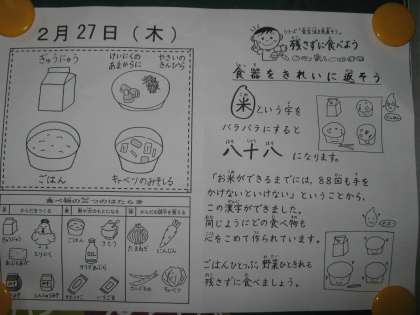 2月27日(木)
ぎゅうにゅう
けいにくの
あまからに
やさいの
きんぴら
ごはん
キャベツのみそしる
食べ物の三つのはたらき
残さずに食べよう
食器をきれいに返そう
米という字を
バラバラにすると
八十八
になります。
「お米ができるまでには、88回も手を
かけないといけない」ということから、
この漢字ができました。
同じようにどの食べ物も
心をこめて作られています。
ごはんひとつぶ、野菜ひときれも
残さずに食べましょう。
ぎゅうにゅう
とりにく
ごはん
さとう
たまねぎ
にんじん
キャベツ